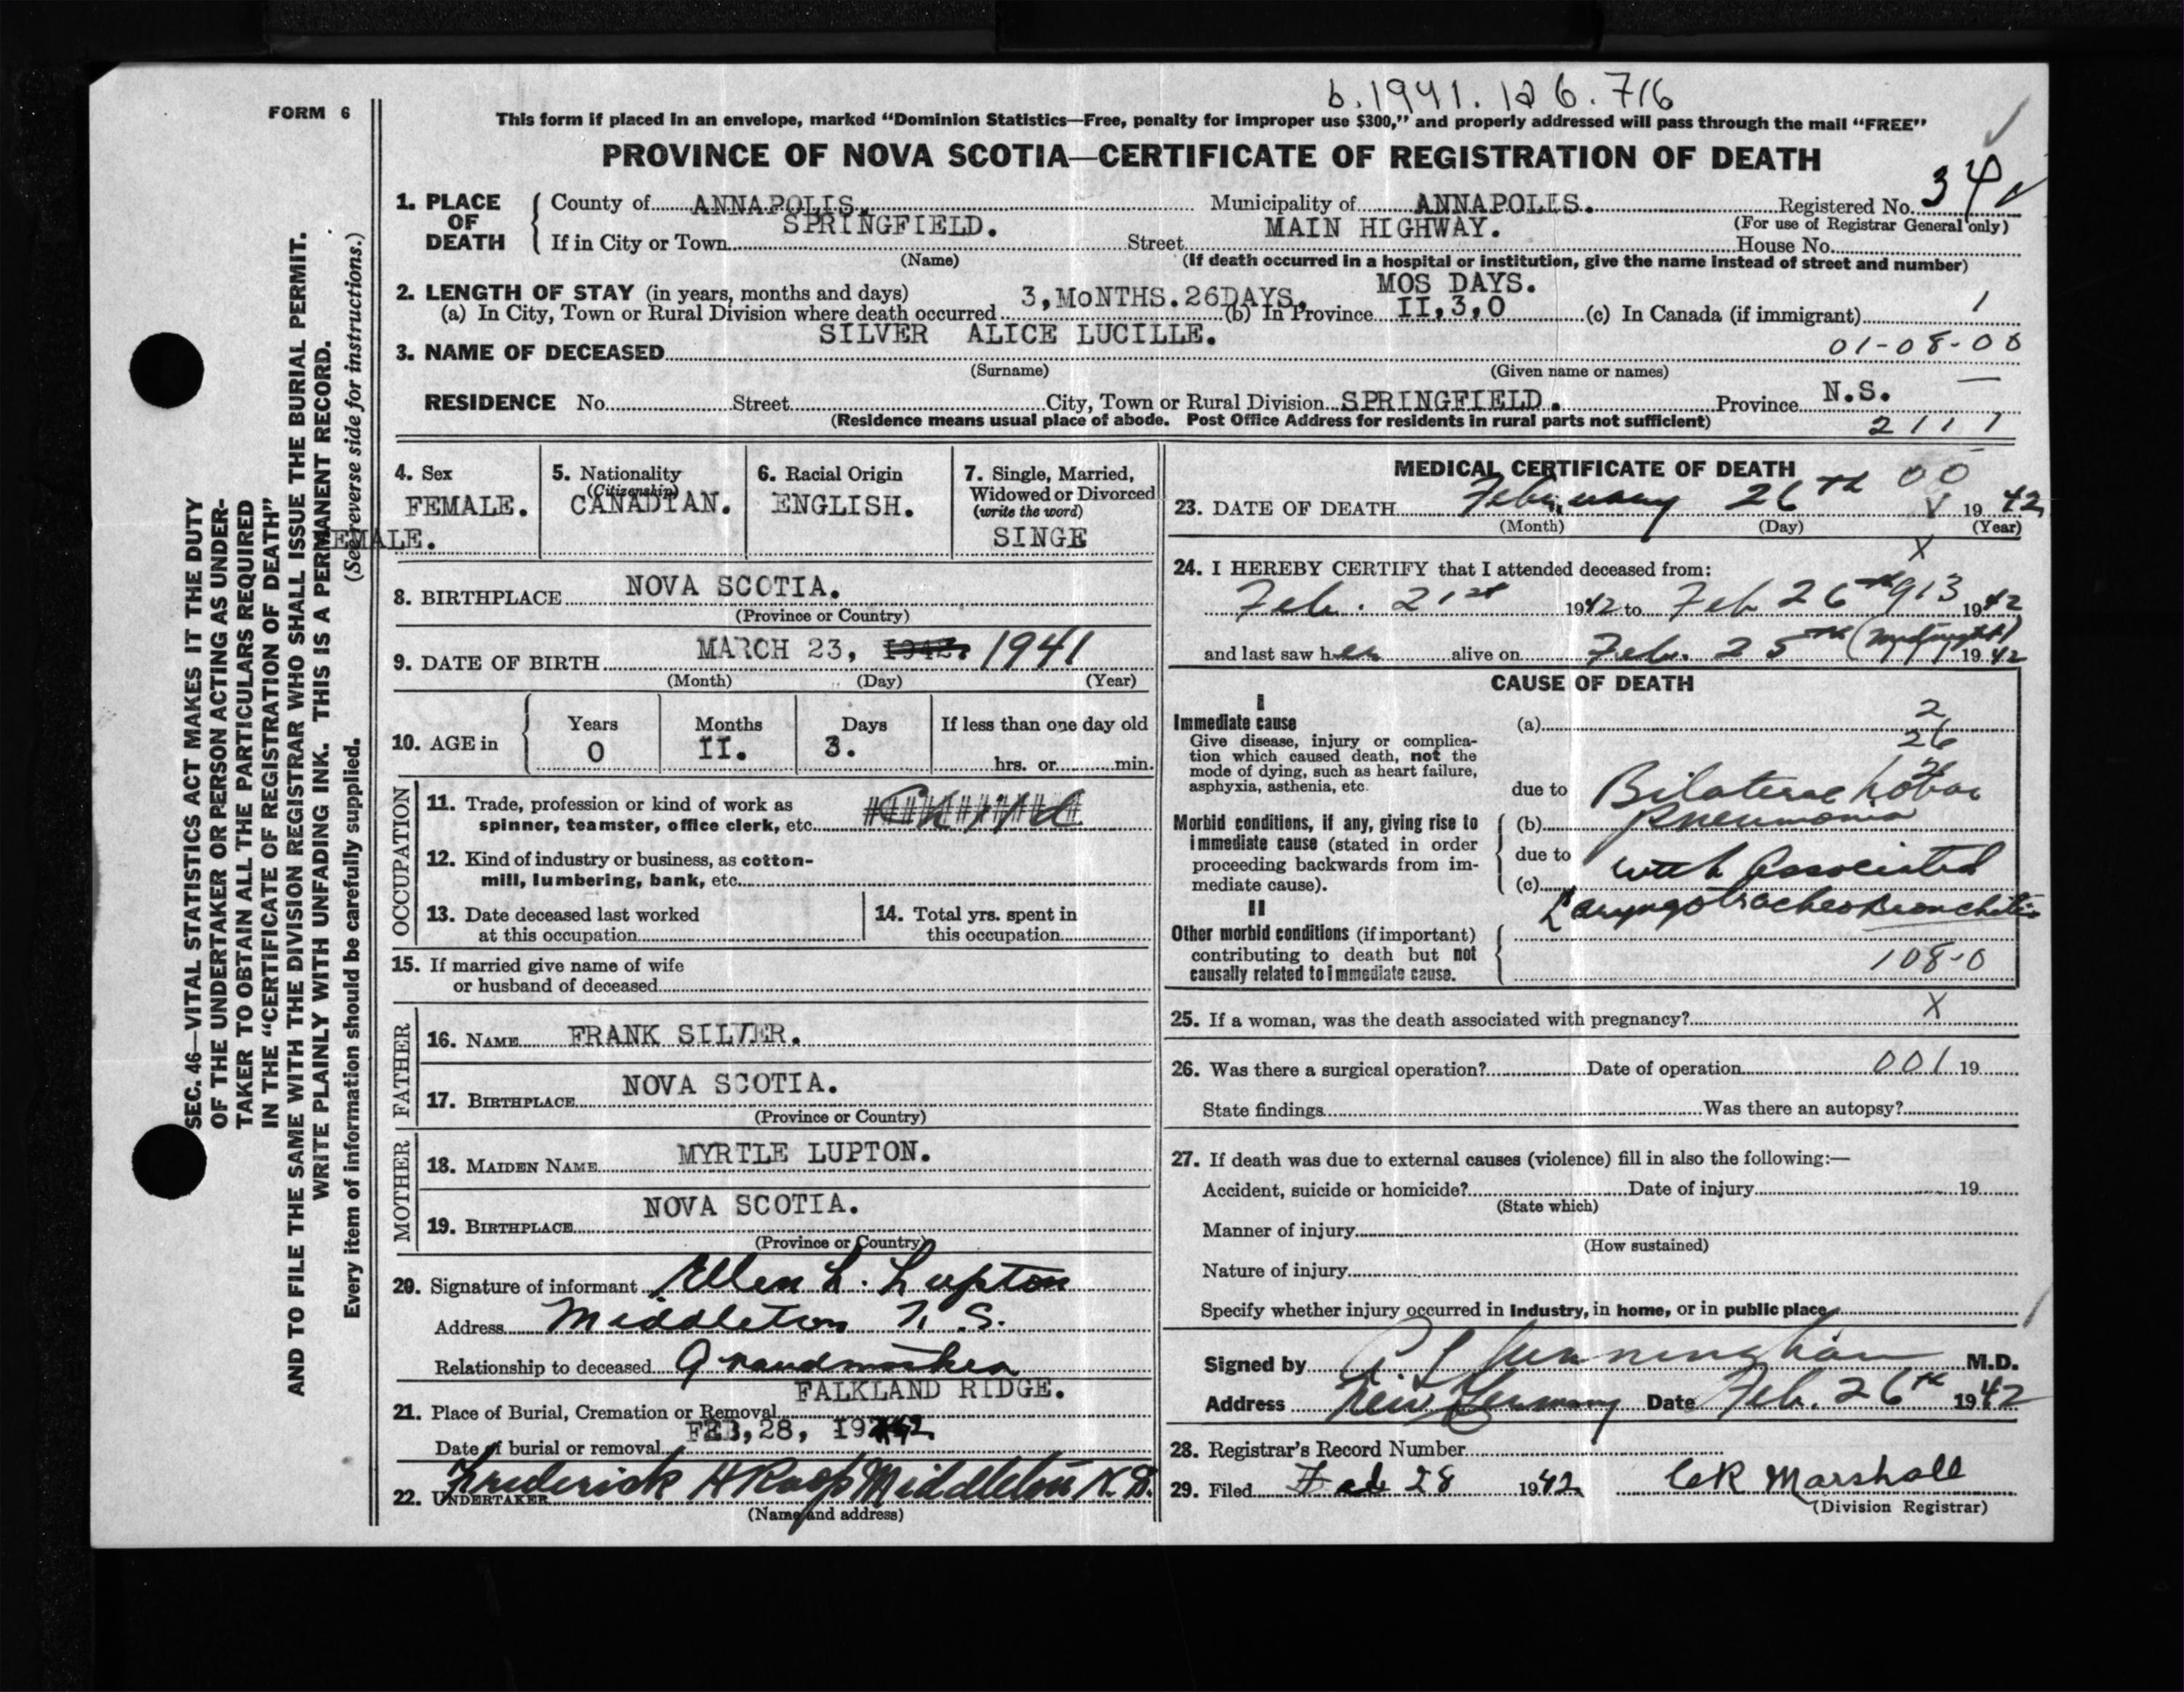 b. 1941. 126. 716
FORM 6
This form if placed in an envelope, marked “Dominion Statistics—Free, penalty for improper use $300,” and properly addressed will pass through the mail “FREE”
PROVINCE OF NOVA SCOTIA—CERTIFICATE OF REGISTRATION OF DEATH
1. PLACE OF DEATH { County of ANNAPOLIS. Municipality of ANNAPOLIS. Registered No. 34
(For use of Registrar General only)
If in City or Town SPRINGFIELD. Street MAIN HIGHWAY. House No.
(Name) (If death occurred in a hospital or institution, give the name instead of street and number)
2. LENGTH OF STAY (in years, months and days) MOS DAYS.
(a) In City, Town or Rural Division where death occurred 3,MoNTHS.26DAYS. (b) In Province II,3,0 (c) In Canada (if immigrant) 1
3. NAME OF DECEASED SILVER ALICE LUCILLE. 01-08-00
(Surname) (Given name or names)
RESIDENCE No. Street City, Town or Rural Division SPRINGFIELD. Province N.S.
(Residence means usual place of abode. Post Office Address for residents in rural parts not sufficient) 2111
4. Sex
FEMALE.
FEMALE.
5. Nationality
(Citizenship)
CANADIAN.
6. Racial Origin
ENGLISH.
7. Single, Married,
Widowed or Divorced
(write the word)
SINGE
8. BIRTHPLACE NOVA SCOTIA.
(Province or Country)
9. DATE OF BIRTH MARCH 23, 1942. 1941
(Month) (Day) (Year)
10. AGE in { Years Months Days If less than one day old
0 II. 3. hrs. or min.
OCCUPATION
11. Trade, profession or kind of work as
spinner, teamster, office clerk, etc. Child
12. Kind of industry or business, as cotton-
mill, lumbering, bank, etc.
13. Date deceased last worked
at this occupation
14. Total yrs. spent in
this occupation
15. If married give name of wife
or husband of deceased
FATHER
16. NAME FRANK SILVER.
17. BIRTHPLACE NOVA SCOTIA.
(Province or Country)
MOTHER
18. MAIDEN NAME MYRTLE LUPTON.
19. BIRTHPLACE NOVA SCOTIA.
(Province or Country)
20. Signature of informant Ellen L. Lupton
Address Middleton N. S.
Relationship to deceased Grandmother
21. Place of Burial, Cremation or Removal FALKLAND RIDGE.
Date of burial or removal FEB,28, 1942
22. UNDERTAKER Frederick H Roop Middleton N.S.
(Name and address)
MEDICAL CERTIFICATE OF DEATH 00
23. DATE OF DEATH February 26th 1942
(Month) (Day) (Year)
X
24. I HEREBY CERTIFY that I attended deceased from:
Feb. 21st 1942 to Feb 26th 913 1942
and last saw her alive on Feb. 25th (Midnight) 1942
CAUSE OF DEATH
I
Immediate cause (a) 2
26
Give disease, injury or complica-
tion which caused death, not the
mode of dying, such as heart failure,
asphyxia, asthenia, etc.
due to Bilateral Lobar
Morbid conditions, if any, giving rise to
immediate cause (stated in order
proceeding backwards from im-
mediate cause).
(b) Pneumonia
due to with Associated
(c) Laryngotracheobronchitis
II
Other morbid conditions (if important)
contributing to death but not
causally related to immediate cause.
108-0
25. If a woman, was the death associated with pregnancy? X
26. Was there a surgical operation? Date of operation 001 19
State findings Was there an autopsy?
27. If death was due to external causes (violence) fill in also the following:—
Accident, suicide or homicide? Date of injury 19
(State which)
Manner of injury
(How sustained)
Nature of injury
Specify whether injury occurred in Industry, in home, or in public place
Signed by Cunningham M.D.
Address New Germany Date Feb. 26th 1942
28. Registrar's Record Number
29. Filed Feb 28 1942 CR Marshall
(Division Registrar)
SEC. 46—VITAL STATISTICS ACT MAKES IT THE DUTY
OF THE UNDERTAKER OR PERSON ACTING AS UNDER-
TAKER TO OBTAIN ALL THE PARTICULARS REQUIRED
IN THE “CERTIFICATE OF REGISTRATION OF DEATH”
AND TO FILE THE SAME WITH THE DIVISION REGISTRAR WHO SHALL ISSUE THE BURIAL PERMIT.
WRITE PLAINLY WITH UNFADING INK. THIS IS A PERMANENT RECORD.
Every item of information should be carefully supplied. (See reverse side for instructions.)